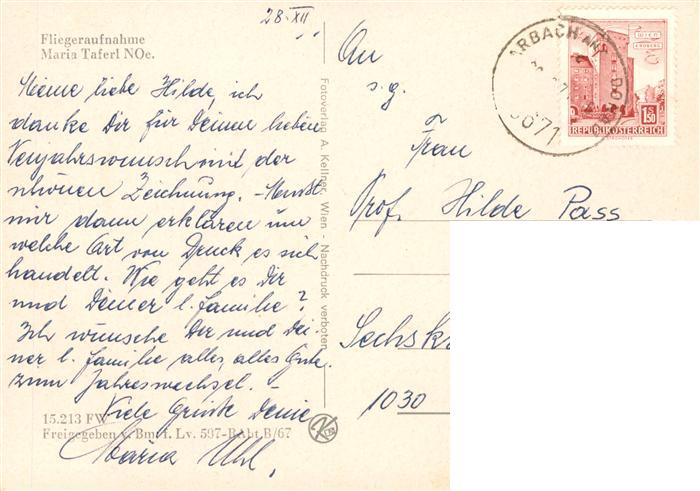 28. XII
Fliegeraufnahme
Maria Taferl NOe.
Meine liebe Hilde, ich
danke Dir für Deinen lieben
Neujahrswunsch mit der
schönen Zeichnung. - Mußt
mir dann erklären um
welche Art von Druck es sich
handelt. Wie geht es Dir
und Deiner l. Familie?
Ich wünsche Dir und Dei-
ner l. Familie alles, alles Gute
zum Jahreswechsel. -
Viele Grüße Deine
Maria Uhl.
15.213 FW
Freigegeben v. Bm f. Lv. 507-RAbt.B/67
Fotoverlag A. Kellner, Wien - Nachdruck verboten
An
s.g.
Frau
Prof. Hilde Pass
Sechskr
1030
ARBACH AN
3671
WIEN
1.50
REPUBLIK ÖSTERREICH